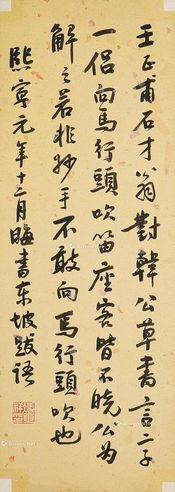 王正甫石才翁對韓公草書言二子
一侣向馬行頭吹笛座客皆不曉公为
解之若非妙手不敢向馬行頭吹也
熙寧元年十二月晦書東坡跋語